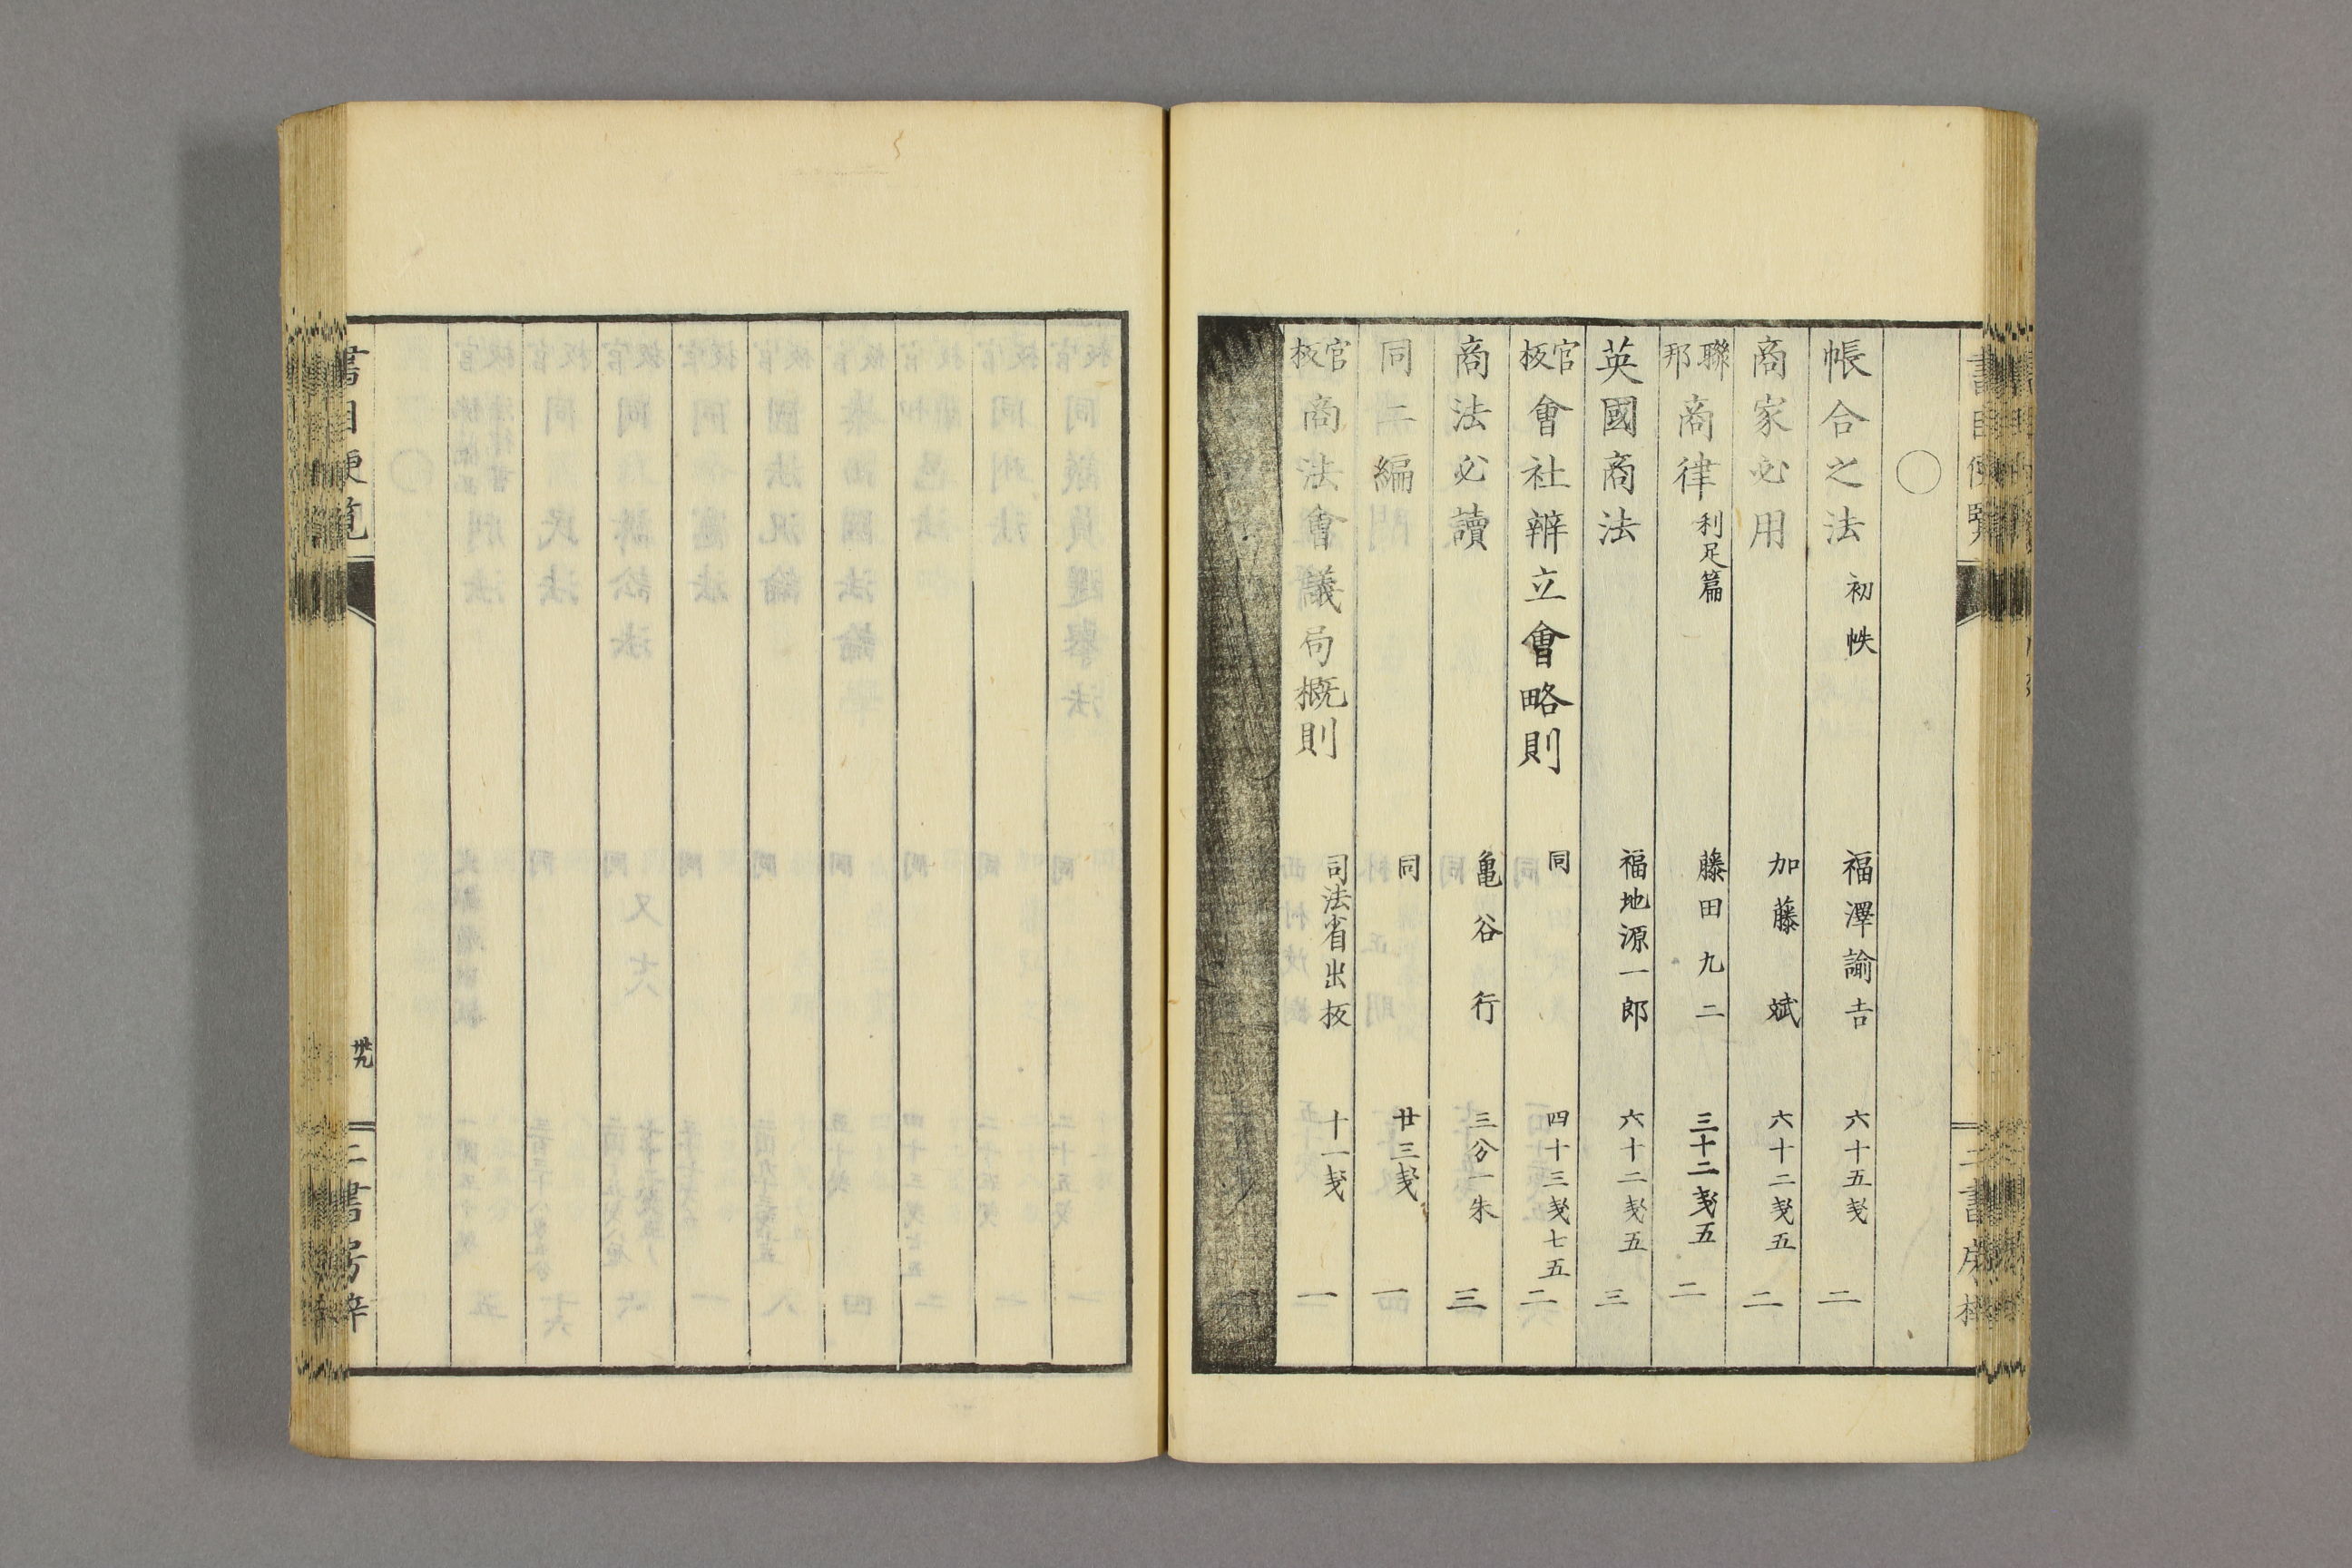 〇
帳合之法 初帙 福澤諭吉 六十五戔 二
商家必用 加藤斌 六十二戔五 二
聯邦商律 利足篇 藤田九二 三十二戔五 二
英國商法 福地源一郎 六十二戔五 三
官板會社辨立會略則 同 四十三戔七五 二
商法必讀 亀谷行 三分一朱 三
同二編 同 廿三戔 一
官板商法會議局概則 司法省出板 十一戔 一
書目便覧 卅九 二書房梓